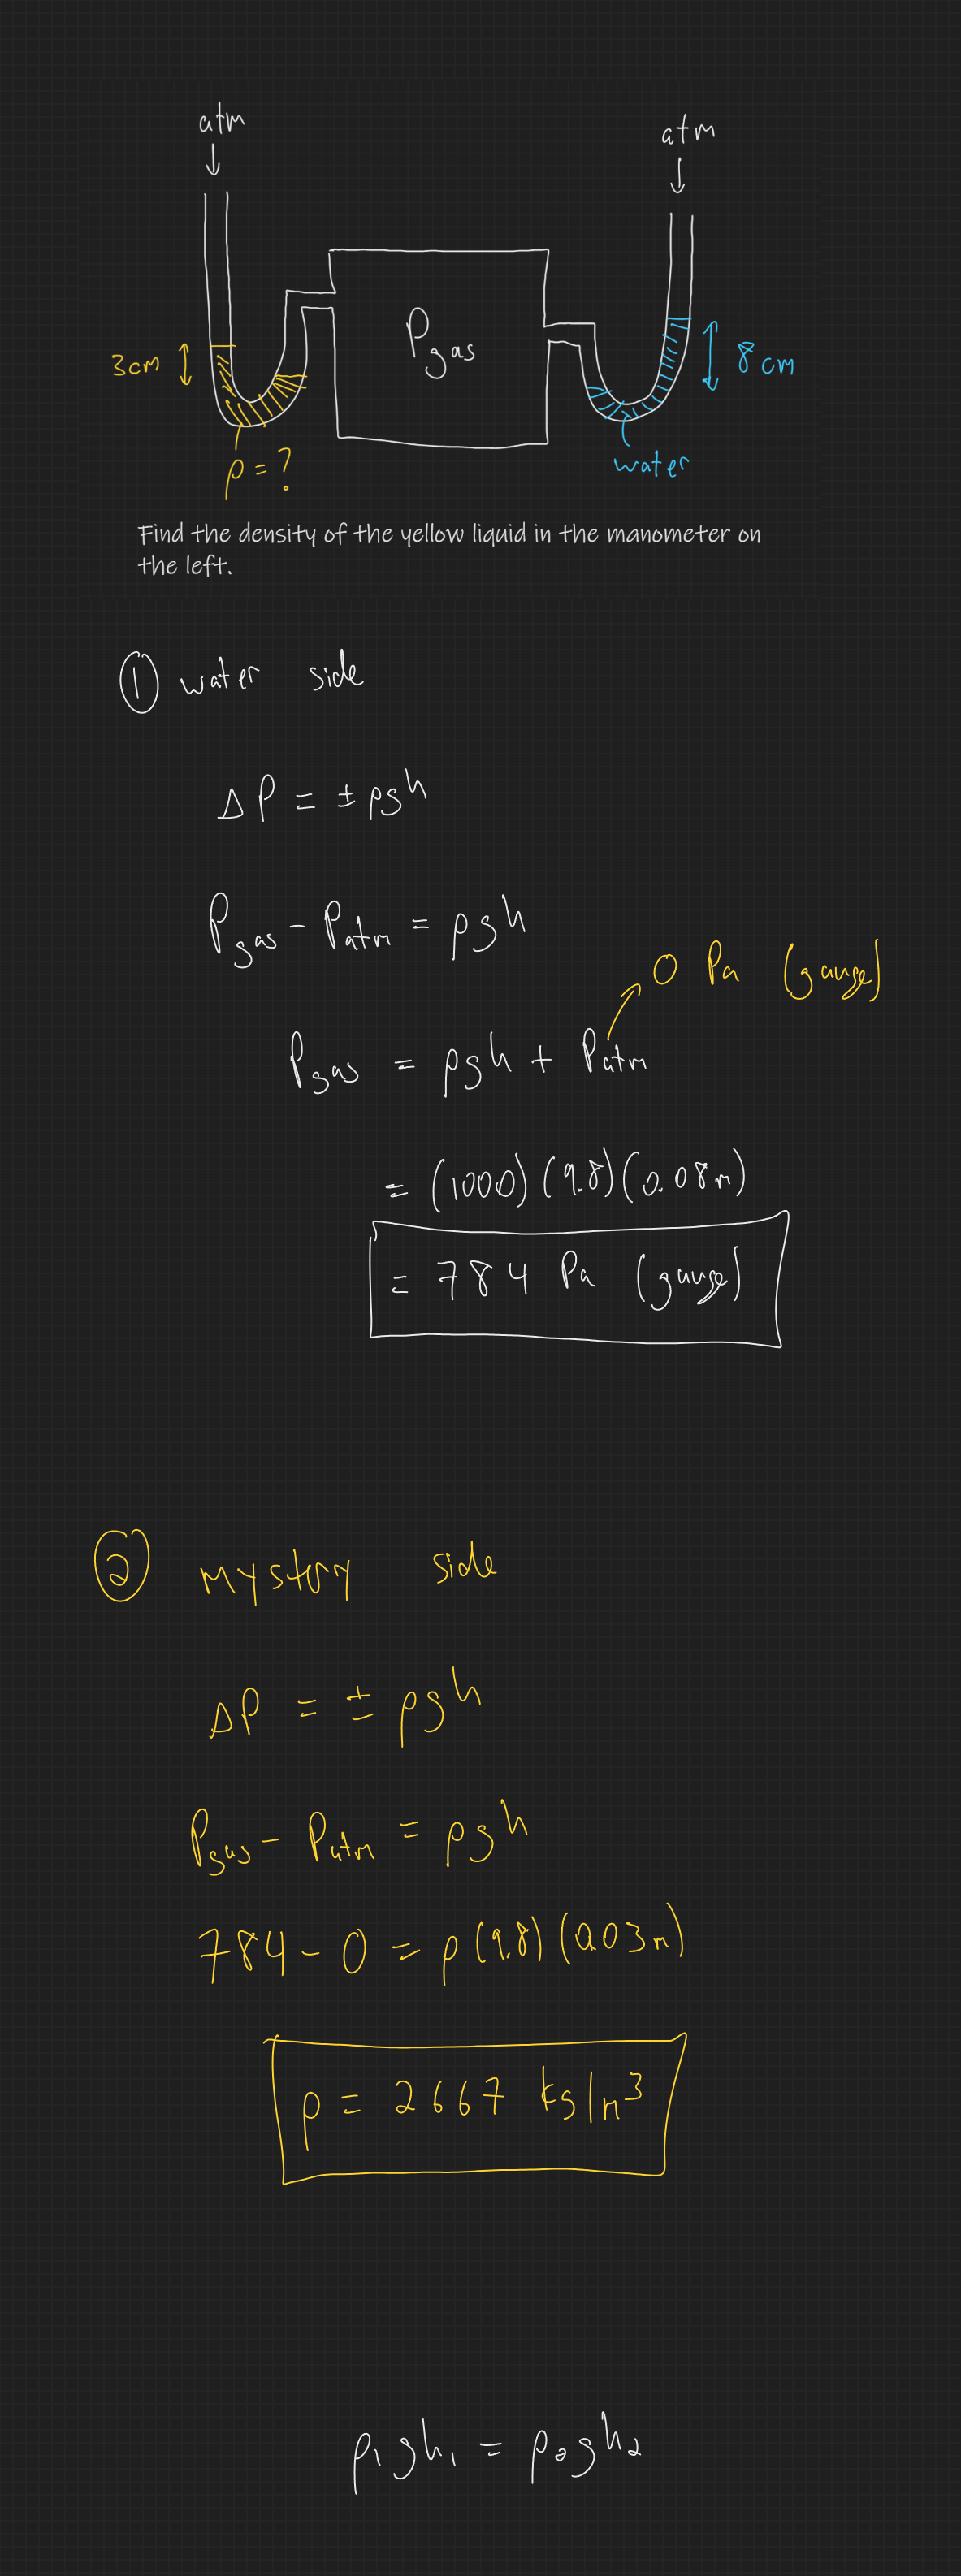 atm
atm
3cm
P gas
8 cm
ρ = ?
water
Find the density of the yellow liquid in the manometer on
the left.
① water side
ΔP = ± ρgh
Pgas - Patm = ρgh
0 Pa (gauge)
Pgas = ρgh + Patm
= (1000) (9.8) (0.08m)
= 784 Pa (gauge)
② mystery side
ΔP = ± ρgh
Pgas - Patm = ρgh
784 - 0 = ρ (9.8) (0.03m)
ρ = 2667 kg/m³
ρ₁gh₁ = ρ₂gh₂